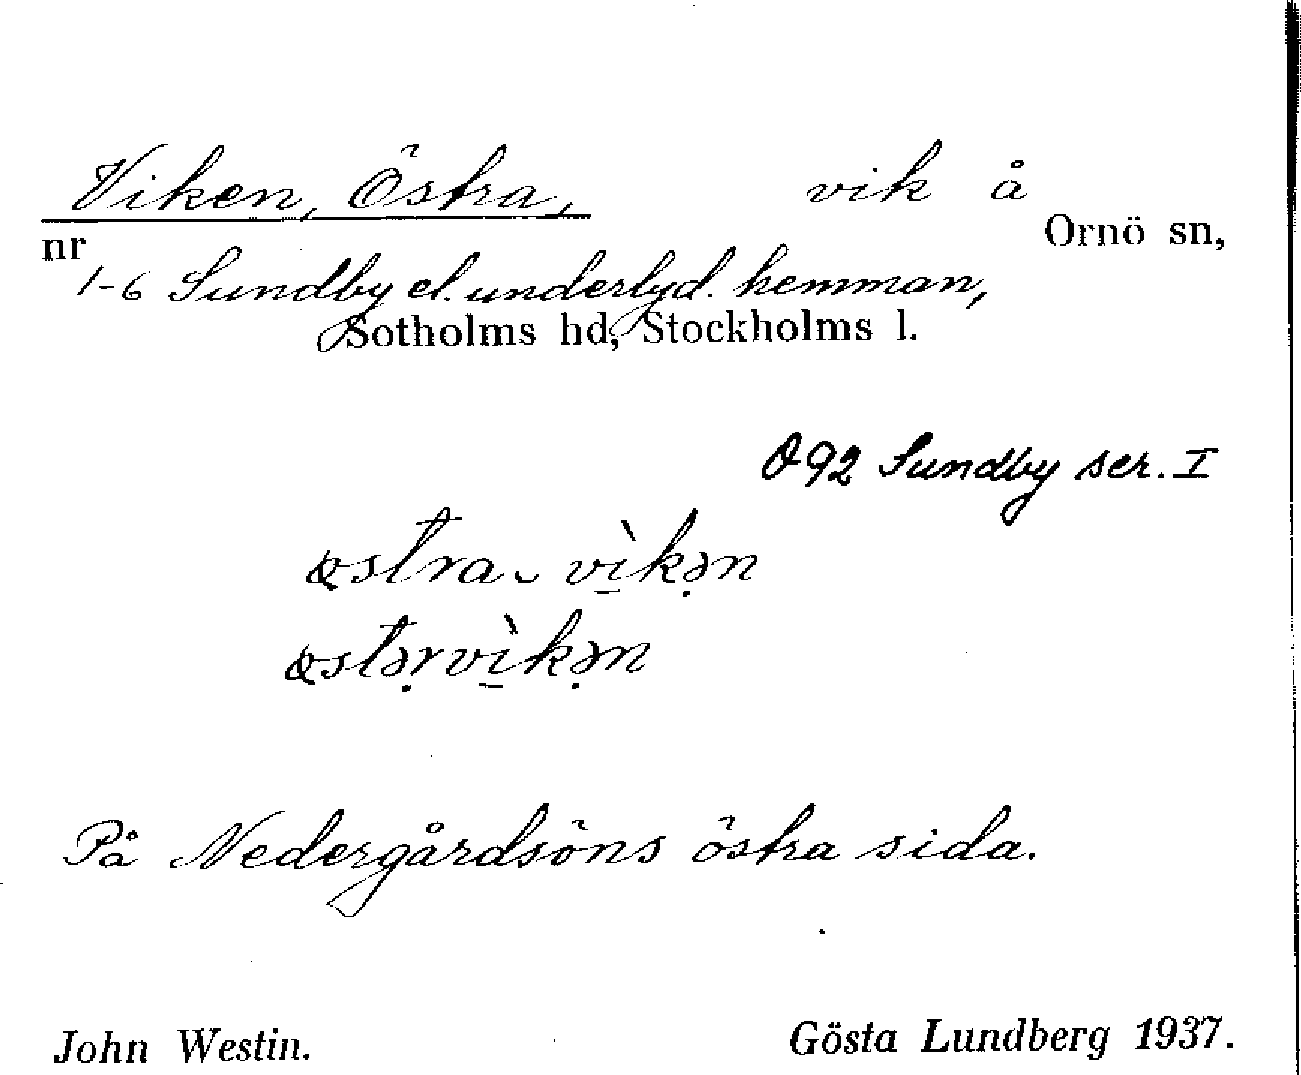 Viken, Östra, vik å
nr Ornö sn,
1-6 Sundby el. underlyd. hemman,
Sotholms hd, Stockholms l.
Ö92 Sundby ser. I
œstra‿ vì̠kə̣n
œstə̣rvì̠kə̣n
På Nedergårdsöns östra sida.
John Westin. Gösta Lundberg 1937.